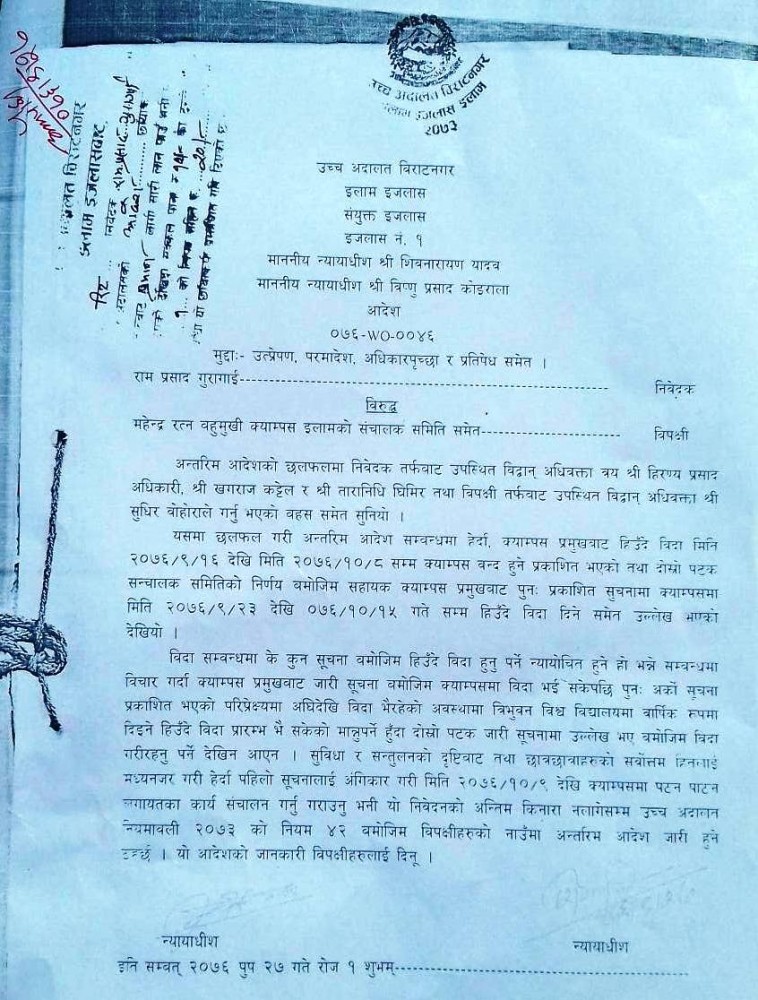 उच्च अदालत विराटनगर
इलाम इजलास इलाम
२०७३
उच्च अदालत विराटनगर
इलाम इजलास
संयुक्त इजलास
इजलास नं. १
माननीय न्यायाधीश श्री शिवनारायण यादव
माननीय न्यायाधीश श्री विष्णु प्रसाद कोइराला
आदेश
०७६-WO-००४६
मुद्दाः- उत्प्रेषण, परमादेश, अधिकारपृच्छा र प्रतिषेध समेत ।
राम प्रसाद गुरागाई--------------------------------------------------- निवेदक
विरुद्ध
महेन्द्र रत्न वहुमुखी क्याम्पस इलामको संचालक समिति समेत-------------------- विपक्षी
अन्तरिम आदेशको छलफलमा निवेदक तर्फवाट उपस्थित विद्वान् अधिवक्ता त्रय श्री हिरण्य प्रसाद
अधिकारी, श्री खगराज कट्टेल र श्री तारानिधि घिमिरे तथा विपक्षी तर्फवाट उपस्थित विद्वान् अधिवक्ता श्री
सुधिर वोहोराले गर्नु भएको वहस समेत सुनियो ।
यसमा छलफल गरी अन्तरिम आदेश सम्वन्धमा हेर्दा, क्याम्पस प्रमुखवाट हिउँदे विदा मिति
२०७६/९/१६ देखि मिति २०७६/१०/८ सम्म क्याम्पस वन्द हुने प्रकाशित भएको तथा दोस्रो पटक
सन्चालक समितिको निर्णय वमोजिम सहायक क्याम्पस प्रमुखवाट पुनः प्रकाशित सुचनामा क्याम्पसमा
मिति २०७६/९/२३ देखि ०७६/१०/१५ गते सम्म हिउँदे विदा दिने समेत उल्लेख भएको
देखियो ।
विदा सम्वन्धमा के कुन सूचना वमोजिम हिउँदे विदा हुनु पर्ने न्यायोचित हुने हो भन्ने सम्वन्धमा
विचार गर्दा क्याम्पस प्रमुखवाट जारी सूचना वमोजिम क्याम्पसमा विदा भई सकेपछि पुनः अर्को सूचना
प्रकाशित भएको परिप्रेक्ष्यमा अघिदेखि विदा भैरहेको अवस्थामा त्रिभुवन विश्व विद्यालयमा वार्षिक रूपमा
दिइने हिउँदे विदा प्रारम्भ भै सकेको मान्नुपर्ने हुँदा दोस्रो पटक जारी सूचनामा उल्लेख भए वमोजिम विदा
गरीरहनु पर्ने देखिन आएन । सुविधा र सन्तुलनको दृष्टिवाट तथा छात्रछात्राहरुको सर्वोत्तम हितलाई
मध्यनजर गरी हेर्दा पहिलो सूचनालाई अंगिकार गरी मिति २०७६/१०/९ देखि क्याम्पसमा पठन पाठन
लगायतका कार्य संचालन गर्नु गराउनु भनी यो निवेदनको अन्तिम किनारा नलागेसम्म उच्च अदालत
नियमावली २०७३ को नियम ४२ वमोजिम विपक्षीहरुको नाउँमा अन्तरिम आदेश जारी हुने
ठहर्छ । यो आदेशको जानकारी विपक्षीहरुलाई दिनू ।
न्यायाधीश न्यायाधीश
इति सम्वत् २०७६ पुष २७ गते रोज १ शुभम्---------------------------------